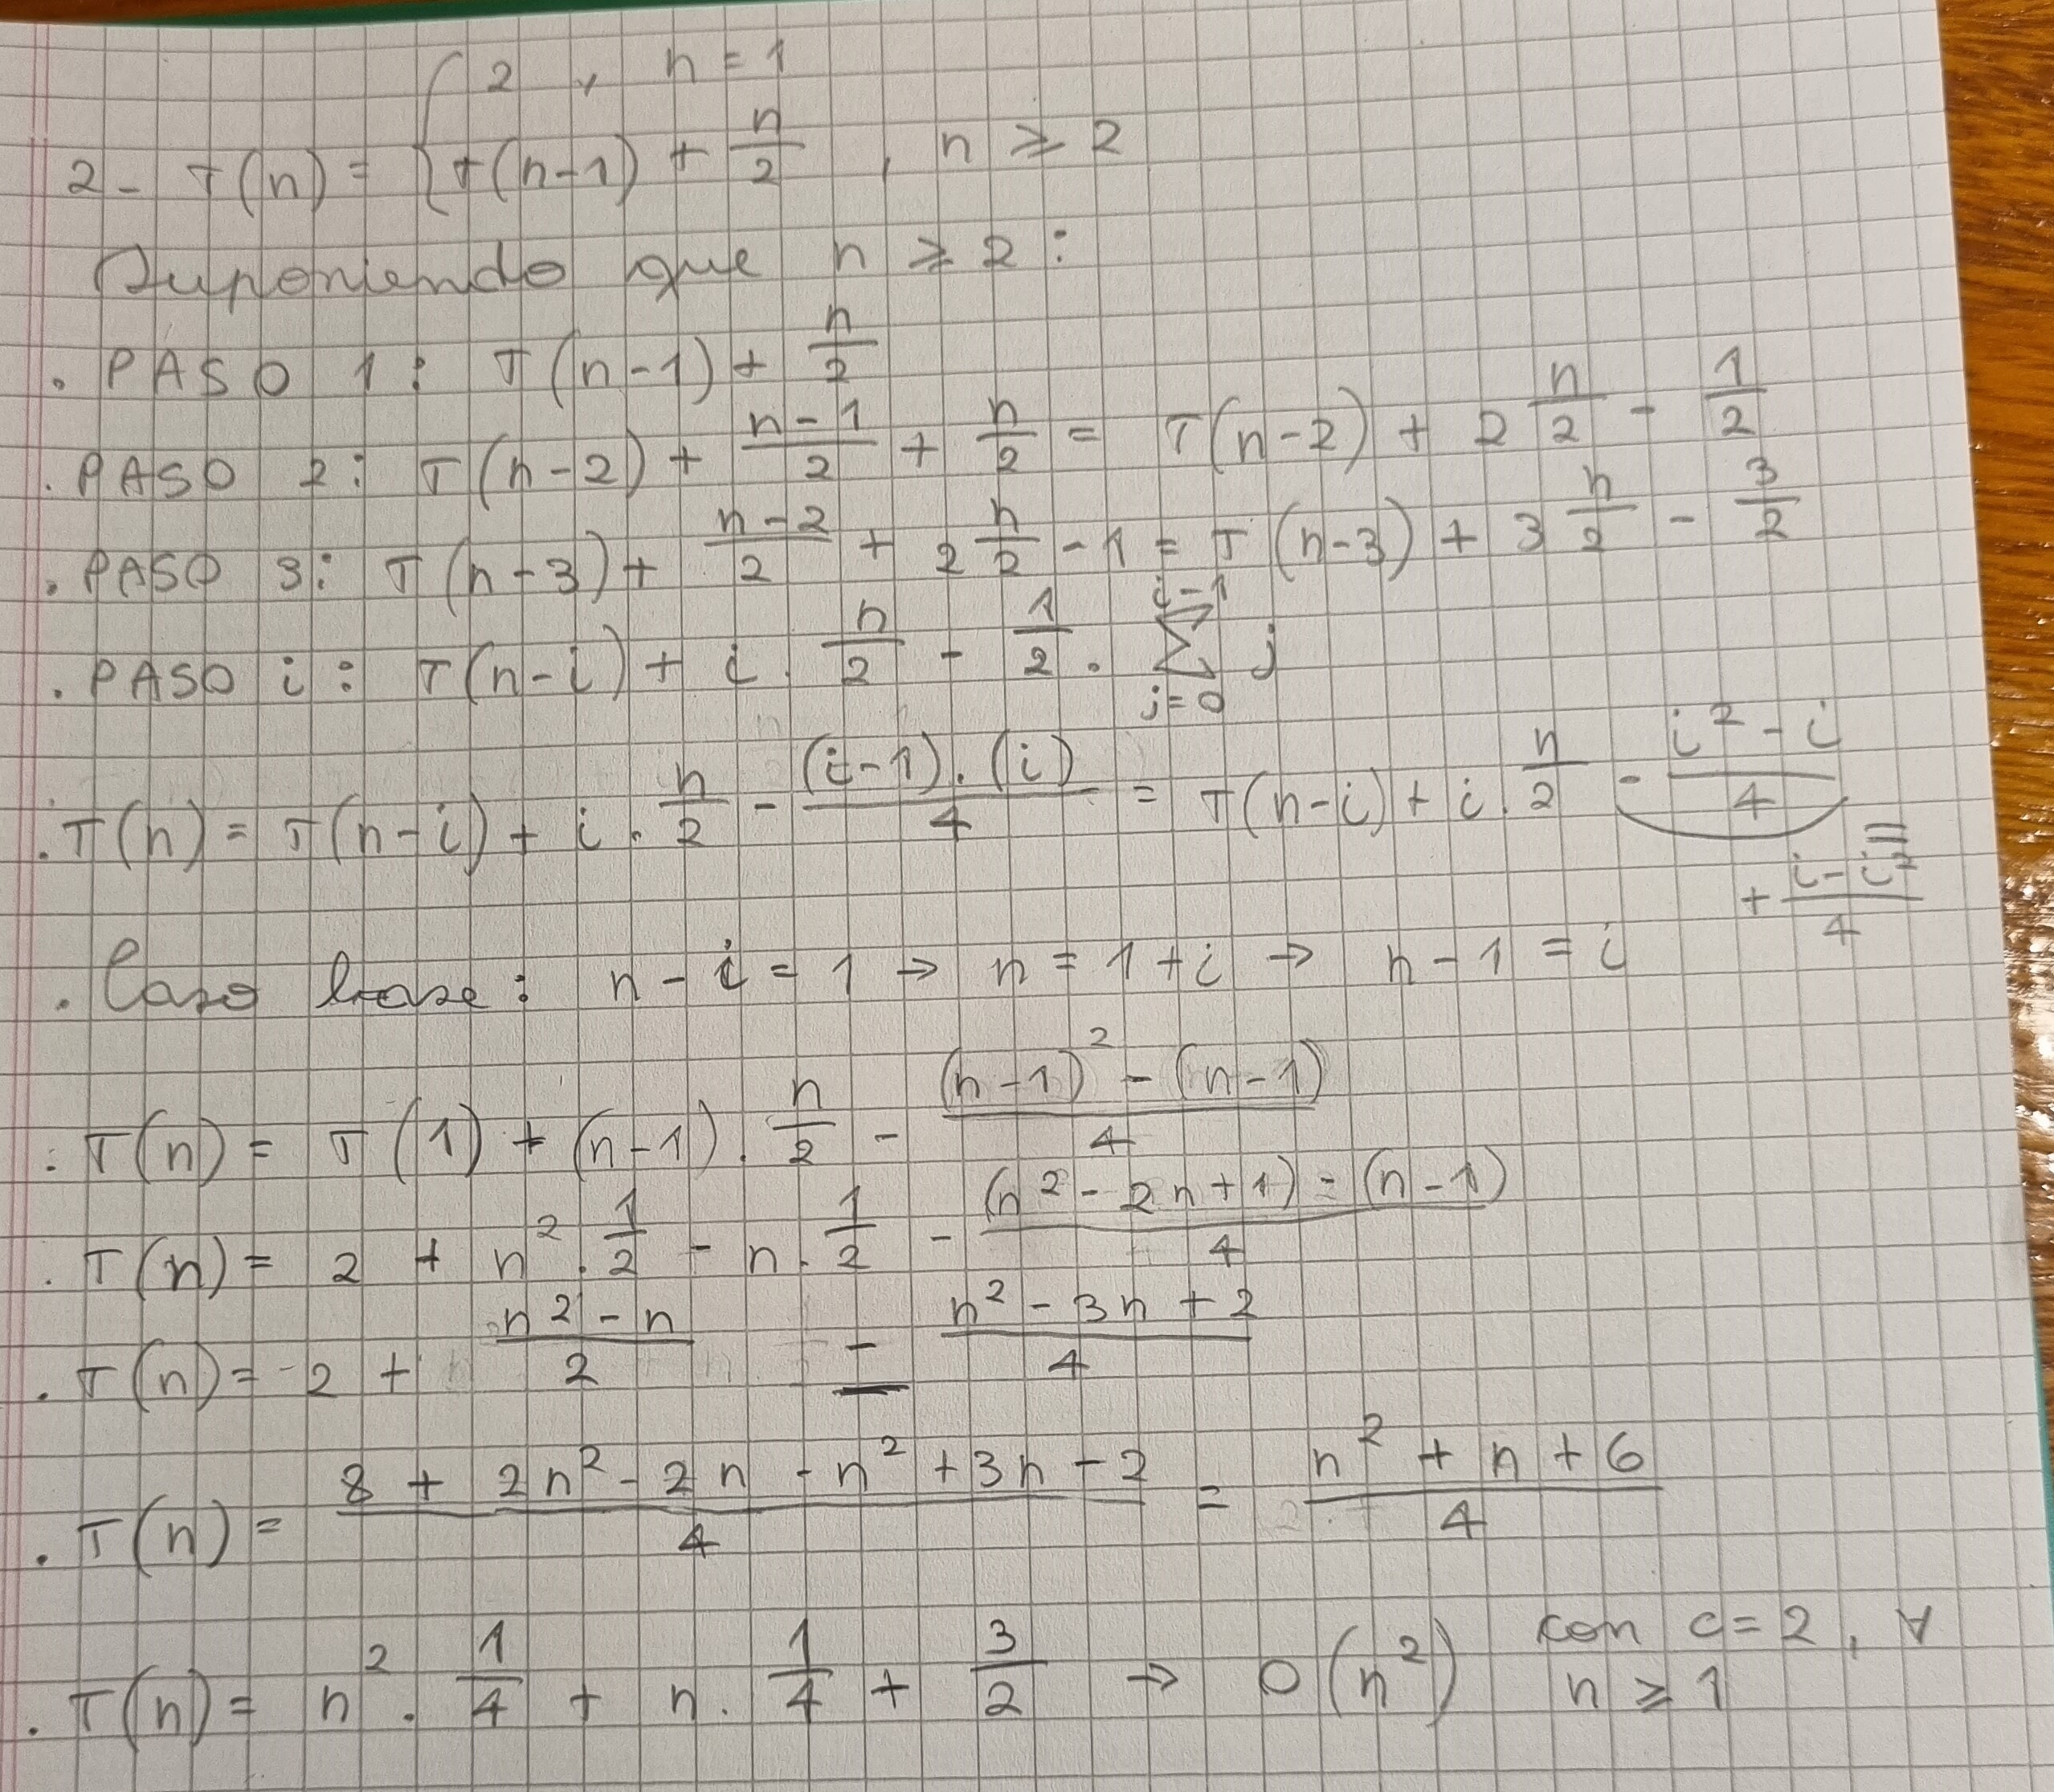 2- T(n) = { 2 , n = 1
T(n-1) + n/2 , n ≥ 2
Suponiendo que n ≥ 2 :
. PASO 1: T(n-1) + n/2
. PASO 2: T(n-2) + (n-1)/2 + n/2 = T(n-2) + 2 n/2 - 1/2
. PASO 3: T(n-3) + (n-2)/2 + 2 n/2 - 1 = T(n-3) + 3 n/2 - 3/2
. PASO i: T(n-i) + i . n/2 - 1/2 . Σ_{j=0}^{i-1} j
. T(n) = T(n-i) + i . n/2 - ((i-1).(i))/4 = T(n-i) + i . n/2 - (i² - i)/4
= + (i - i²)/4
. Caso base: n - i = 1 → n = 1 + i → n - 1 = i
: T(n) = T(1) + (n-1) . n/2 - ((n-1)² - (n-1))/4
. T(n) = 2 + n² . 1/2 - n . 1/2 - ((n² - 2n + 1) - (n-1))/4
. T(n) = 2 + (n² - n)/2 - (n² - 3n + 2)/4
. T(n) = (8 + 2n² - 2n - n² + 3n - 2)/4 = (n² + n + 6)/4
. T(n) = n² . 1/4 + n . 1/4 + 3/2 → O(n²) con c = 2, ∀
n ≥ 1